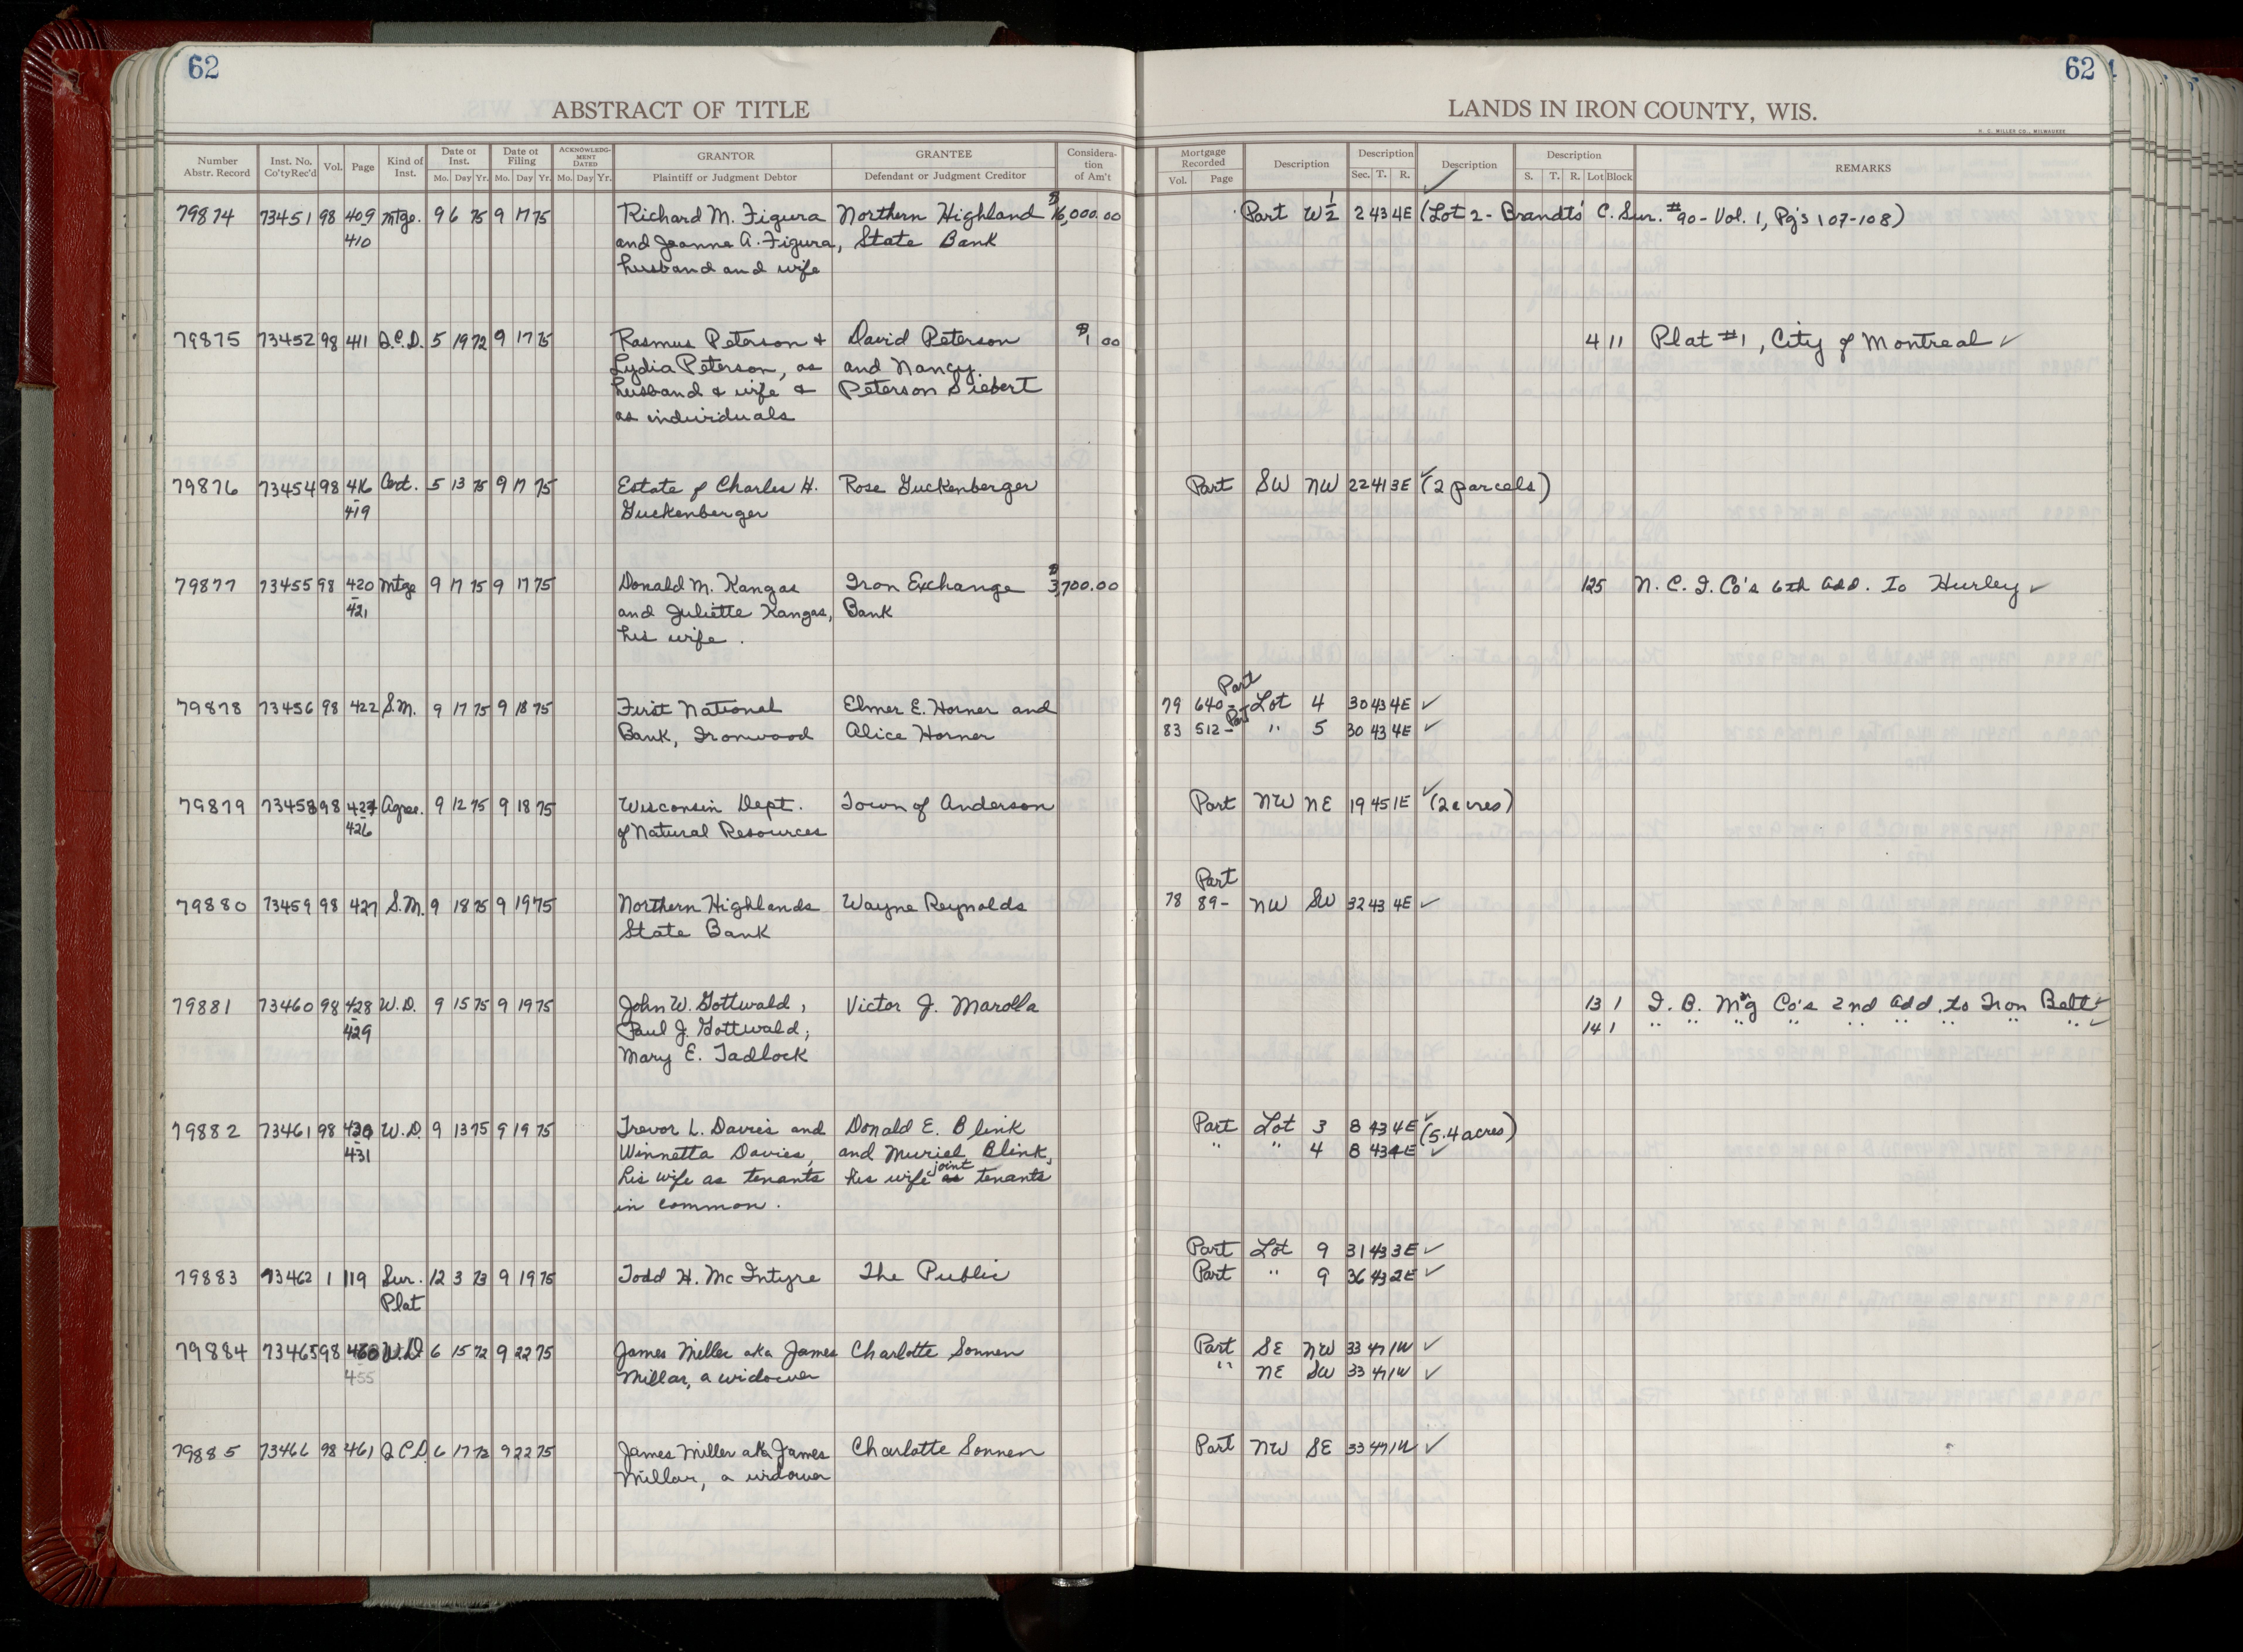 62
62
ABSTRACT OF TITLE
LANDS IN IRON COUNTY, WIS.
H. C. MILLER CO., MILWAUKEE
Number Abstr. Record | Inst. No. Co'ty Rec'd | Vol. | Page | Kind of Inst. | Date of Inst. Mo. Day Yr. | Date of Filing Mo. Day Yr. | ACKNOWLEDGMENT DATED Mo. Day Yr. | GRANTOR Plaintiff or Judgment Debtor | GRANTEE Defendant or Judgment Creditor | Consideration of Am't | Mortgage Recorded Vol. Page | Description | Description Sec. T. R. | Description | Description S. T. R. Lot Block | REMARKS
79874 73451 98 409 Mtge. 9 6 75 9 17 75 Richard M. Figura Northern Highland $16,000.00 Part W 1/2 2 43 4E (Lot 2 - Brandts' C. Sur. #90 - Vol. 1, Pg's 107-108)
410 and Joanne A. Figura, State Bank
husband and wife
79875 73452 98 411 Q.C.D. 5 19 72 9 17 75 Rasmus Peterson & David Peterson $1 00 4 11 Plat #1, City of Montreal ✓
Lydia Peterson, as and Nancy
husband & wife & Peterson Siebert
as individuals
79876 73454 98 416 Cert. 5 13 75 9 17 75 Estate of Charles H. Rose Guckenberger Part SW NW 22 41 3E ✓ (2 parcels)
419 Guckenberger
79877 73455 98 420 Mtge 9 17 75 9 17 75 Donald M. Kangas Iron Exchange $3,700.00 1 25 N. C. I. Co's 6th Add. To Hurley ✓
421 and Juliette Kangas, Bank
his wife.
79878 73456 98 422 S.M. 9 17 75 9 18 75 First National Elmer E. Horner and 79 640 - Part Lot 4 30 43 4E ✓
Bank, Ironwood Alice Horner 83 512 - Part " 5 30 43 4E ✓
79879 73458 98 424 Agree. 9 12 75 9 18 75 Wisconsin Dept. Town of Anderson Part NW NE 19 45 1E ✓ (2 acres)
426 of Natural Resources
Part
79880 73459 98 427 S.M. 9 18 75 9 19 75 Northern Highlands Wayne Reynolds 78 89 - NW SW 32 43 4E ✓
State Bank
79881 73460 98 428 W.D. 9 15 75 9 19 75 John W. Gottwald, Victor J. Marolla 13 1 I. B. M'g Co's 2nd Add. to Iron Belt ✓
429 Paul J. Gottwald; 14 1 " " " " " " " " " ✓
Mary E. Tadlock
79882 73461 98 430 W.D. 9 13 75 9 19 75 Trevor L. Davies and Donald E. Blink Part Lot 3 8 43 4E ✓ (5.4 acres)
431 Winnetta Davies, and Muriel Blink, " " 4 8 43 4E ✓
his wife as tenants his wife as joint tenants
in common.
Part Lot 9 31 43 3E ✓
79883 73462 1 119 Sur. 12 3 73 9 19 75 Todd H. Mc Intyre The Public Part " 9 36 43 2E ✓
Plat
79884 73465 98 460 W.D. 6 15 72 9 22 75 James Miller aka James Charlotte Sonnen Part SE NW 33 47 1W ✓
455 Millar, a widower " NE SW 33 47 1W ✓
79885 73466 98 461 Q C D. 6 17 72 9 22 75 James Miller aka James Charlotte Sonnen Part NW SE 33 47 1W ✓
Millar, a widower